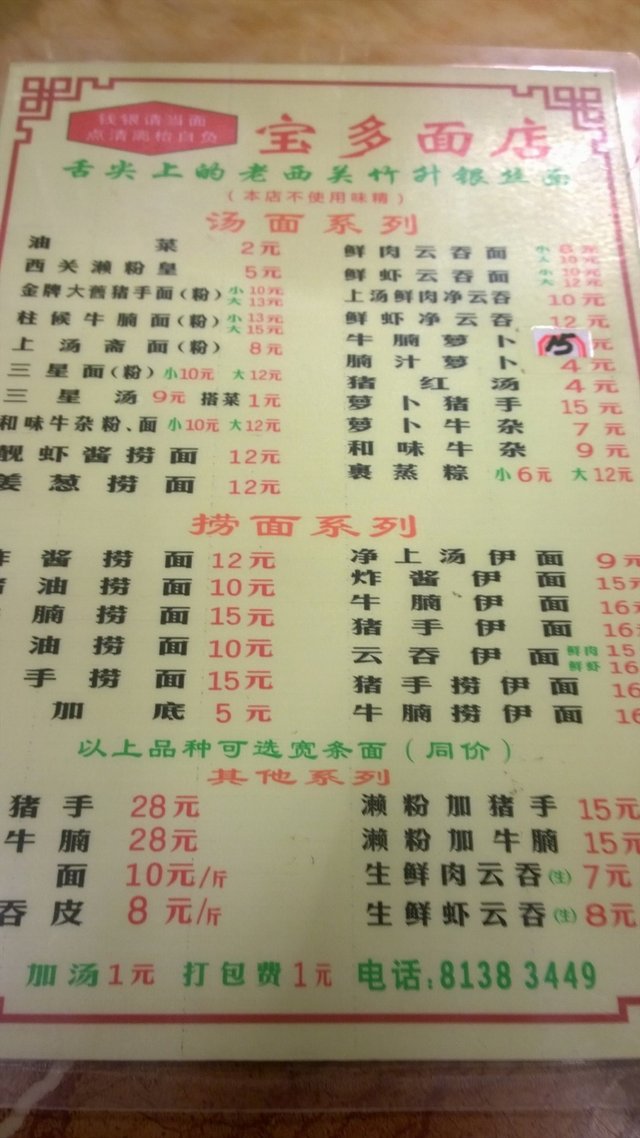 钱银请当面
点清离枱自负
宝多面店
舌尖上的老西关竹升银丝面
(本店不使用味精)
汤面系列
油菜 2元
西关濑粉皇 5元
金牌大舊猪手面(粉) 小10元 大13元
柱候牛腩面(粉) 小13元 大15元
上汤斋面(粉) 8元
三星面(粉) 小10元 大12元
三星汤 9元 搭菜1元
和味牛杂粉、面 小10元 大12元
靓虾酱捞面 12元
姜葱捞面 12元
鲜肉云吞面 小8元 大10元
鲜虾云吞面 小10元 大12元
上汤鲜肉净云吞 10元
鲜虾净云吞 12元
牛腩萝卜 15元
腩汁萝卜 4元
猪红汤 4元
萝卜猪手 15元
萝卜牛杂 7元
和味牛杂 9元
裹蒸粽 小6元 大12元
捞面系列
炸酱捞面 12元
油捞面 10元
腩捞面 15元
油捞面 10元
手捞面 15元
加底 5元
净上汤伊面 9元
炸酱伊面 15元
牛腩伊面 16元
猪手伊面 16元
云吞伊面 鲜肉15 鲜虾16
猪手捞伊面 16
牛腩捞伊面 16
以上品种可选宽条面(同价)
其他系列
猪手 28元
牛腩 28元
面 10元/斤
吞皮 8元/斤
濑粉加猪手 15元
濑粉加牛腩 15元
生鲜肉云吞(生) 7元
生鲜虾云吞(生) 8元
加汤1元 打包费1元 电话:8138 3449